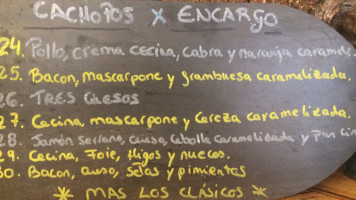 CACHOPOS X ENCARGO
24. Pollo, crema cecina, cabra y naranja caramels.
25. Bacon, mascarpone y frambuesa caramelizada.
26. TRES QUESOS
27. Cecina, mascarpone y Cereza caramelizada.
28. Jamón Serrano, Queso, Cebolla Caramelizada y
29. Cecina, Foie, Higos y nueces.
30. Bacon, queso, Setas y pimientos
* MAS LOS CLÁSICOS *